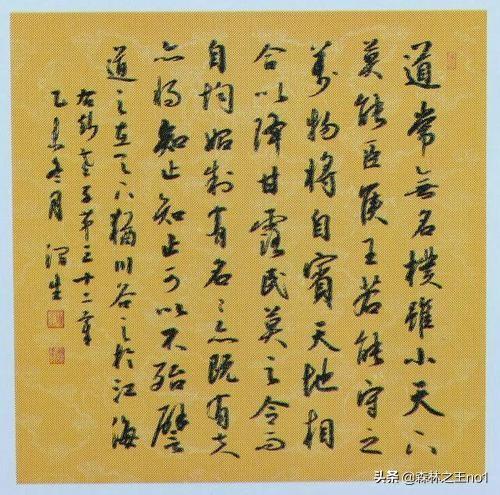 道常無名樸雖小天下
莫能臣侯王若能守之
萬物將自賓天地相
合以降甘露民莫之令而
自均始制有名々亦既有夫
亦將知止知止可以不殆譬
道之在天下猶川谷之於江海
右錄老子第三十二章
乙未冬月 生
头条 @森林之王no1